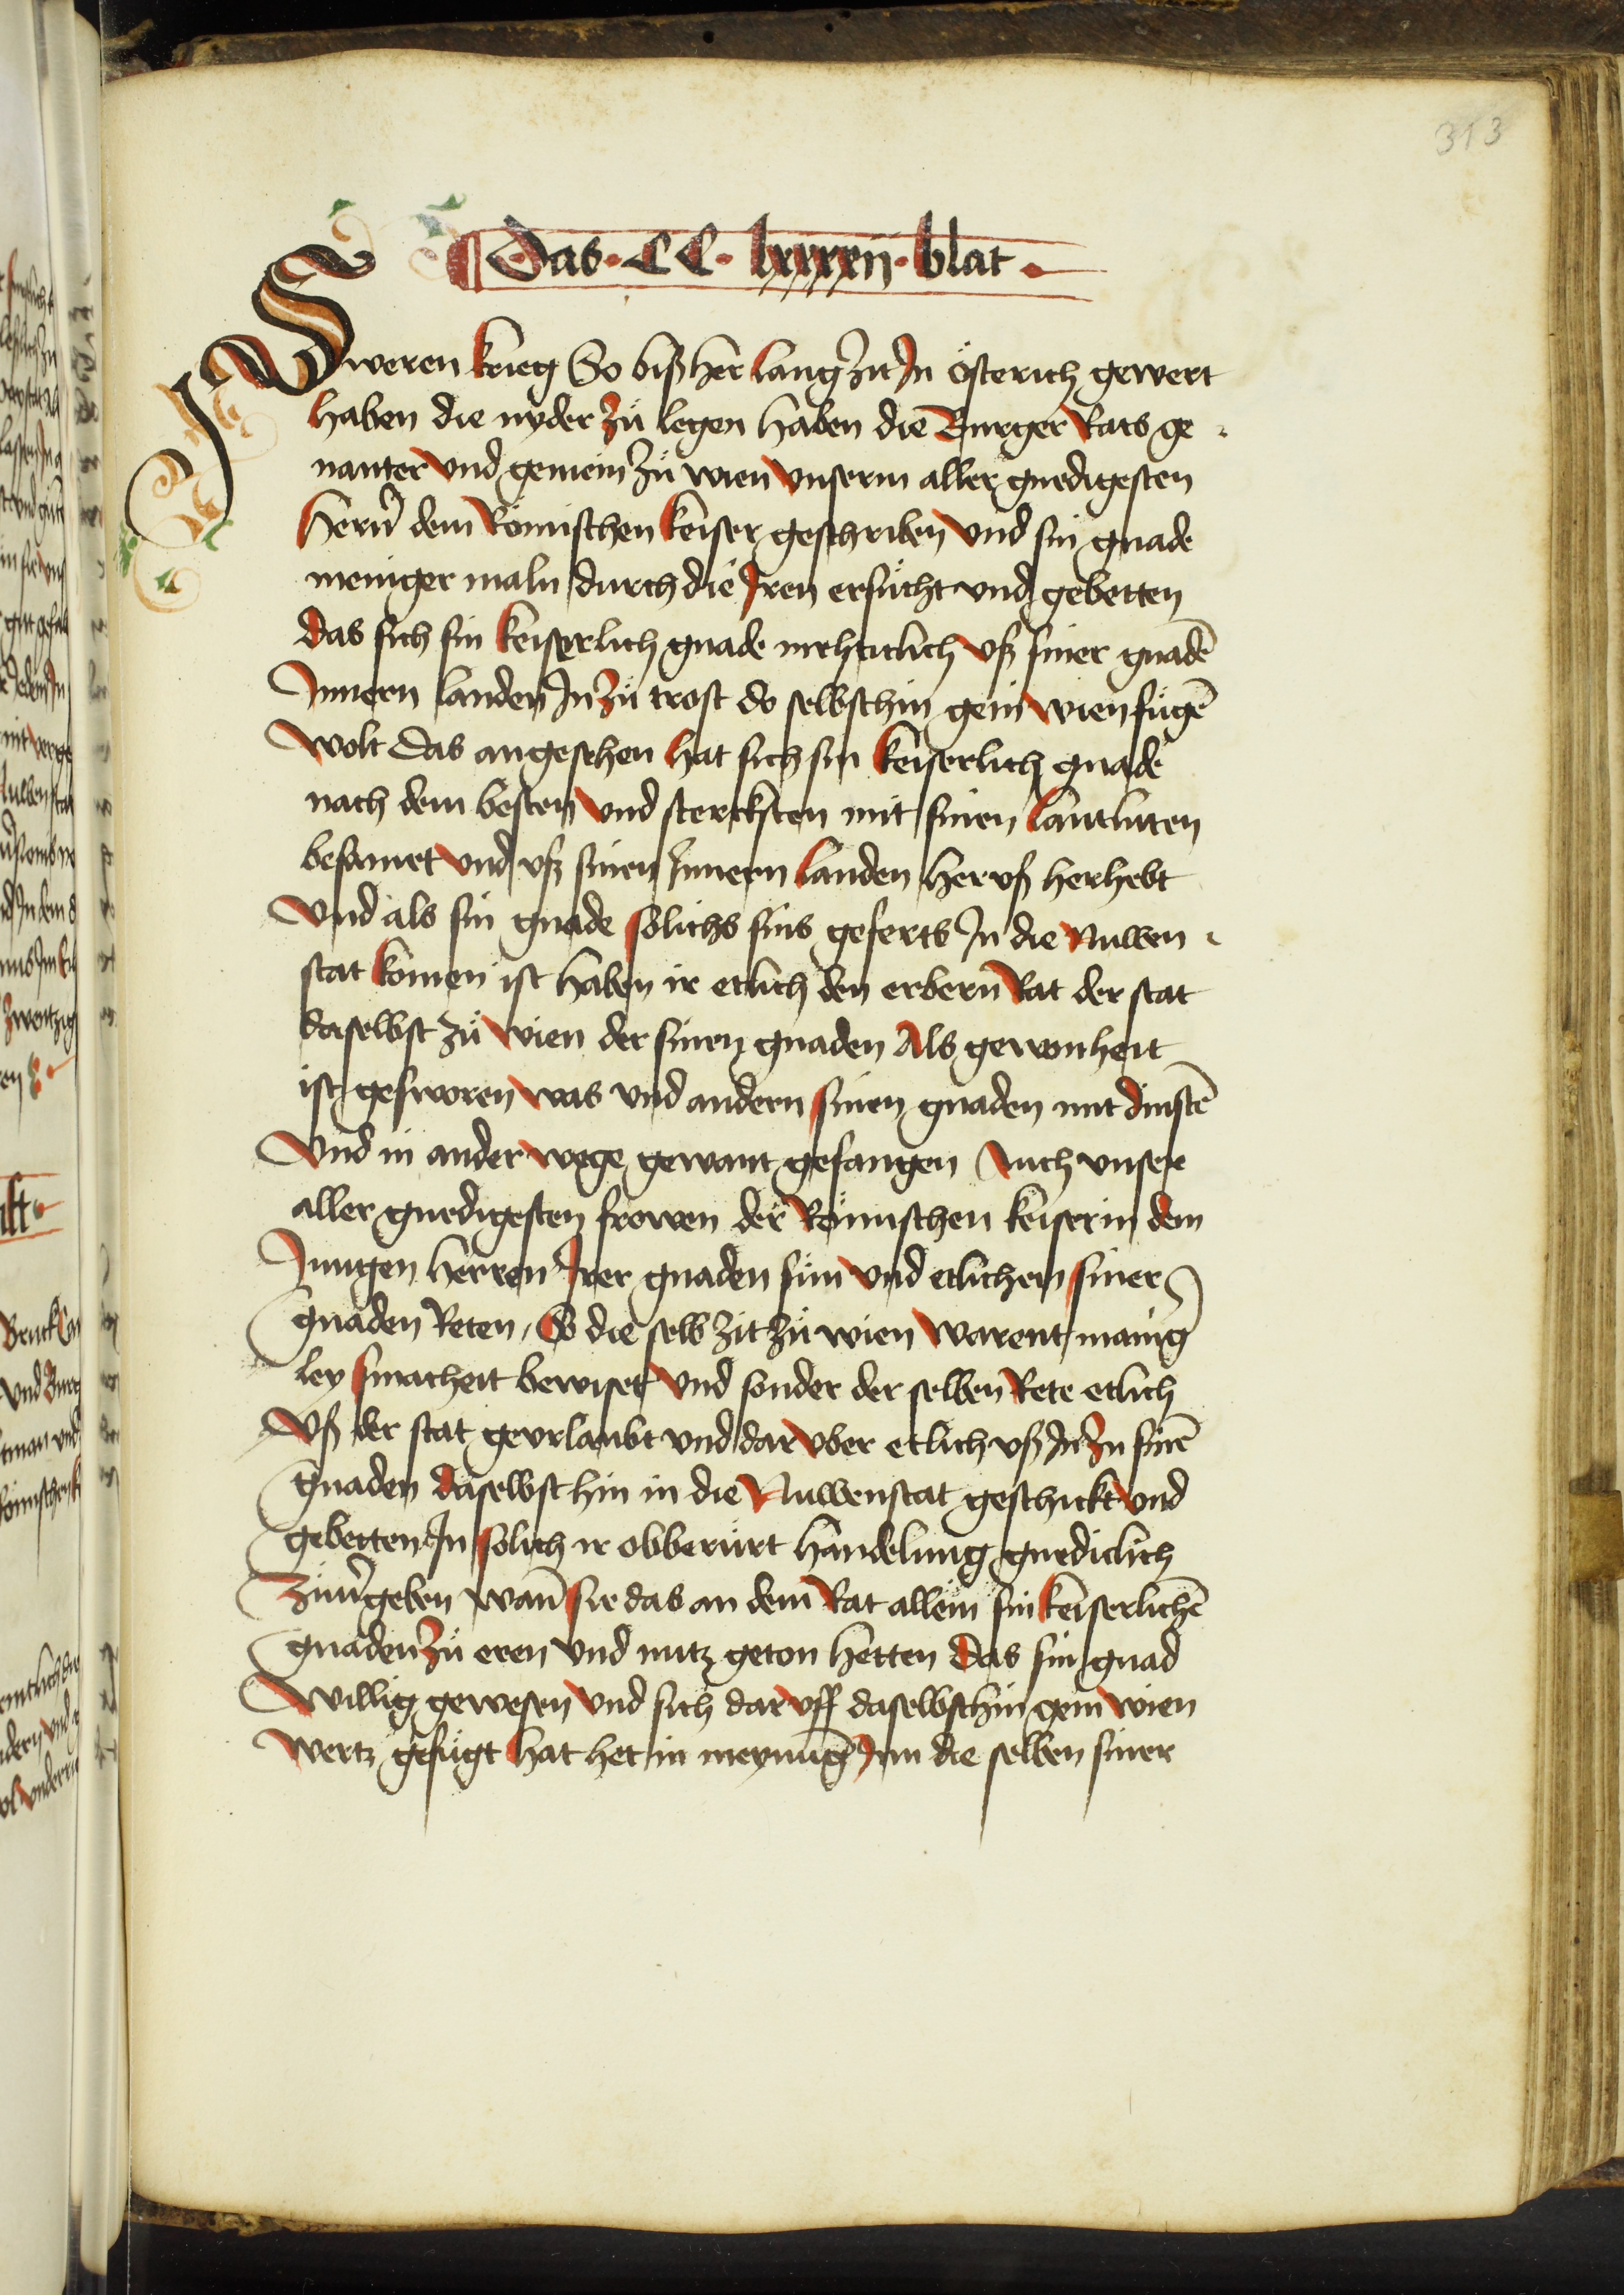 313
Das · CC · lxxxxij · blat ·
Sweren krieg So bißher lang zit In österich gewert
haben die nyder zü legen haben die Burger Rats ge
nanter vnd gemein zü wien vnserm aller gnedigesten
Hern̄ dem Römischen keiser geschriben vnd sin gnade
meniger maln durch die Iren ersücht vnd gebetten
das sich sin keiserlich gnade mechticlich vß siner gnadē
Innern landen In zü trost do selbschin gein wien fügē
wolt Das angesehen hat sich sin keiserlich gnade
nach dem besten vnd sterksten mit sinen lantluten
besamet vnd vß sinen Innern landen her vß herhebt
vnd als sin gnade sölichs sins geferts In die Nuwen
stat komen ist haben ir etlich den erbern Rat der stat
daselbst zü wien der sinen gnaden Als gewonheit
ist gesworen was vnd andern sinen gnaden mit dinstē
vnd in ander wege gewant gefangen Auch vnser
aller gnedigesten frowen der Römischen keiserin dem
Jungen herren Irer gnaden sün vnd etlichem siner
gnaden Reten, So die selb zit zü wien warent manig
ley smacheit bewiset vnd sonder der selben Rete etlich
vß der stat gevrlaubt vnd dar vber etlich vß In zu sinē
gnaden daselbst hin in die Nuwenstat geschickt vnd
gebetten In sölich ir obberürt handelung gnediclich
zuu̇geben wan̄ sie das an dem Rat allein sin keiserlichē
gnaden zü eren vnd nutz geton hetten Das sin gnad
willig gewesen vnd sich dar vff daselbschin gein wien
wertz gefügt hat het in meynu̅g Inn die selben siner